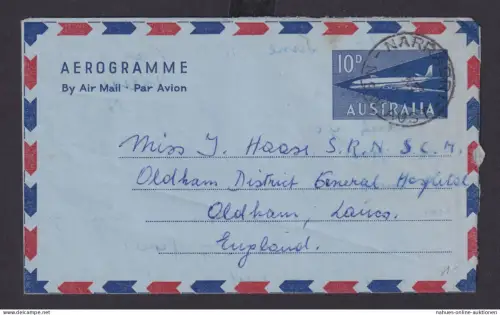 10D
AEROGRAMME
By Air Mail · Par Avion
AUSTRALIA
Miss J. Haase S.R.N. S.C.M.
Oldham District General Hospital
Oldham, Lancs.
England.
www.delcampe.net
nahuen-online-auktionen